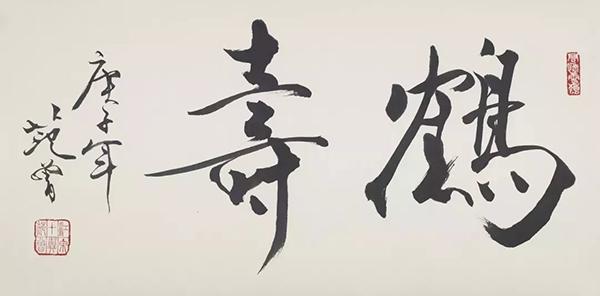 鶴壽
庚子年
范曾